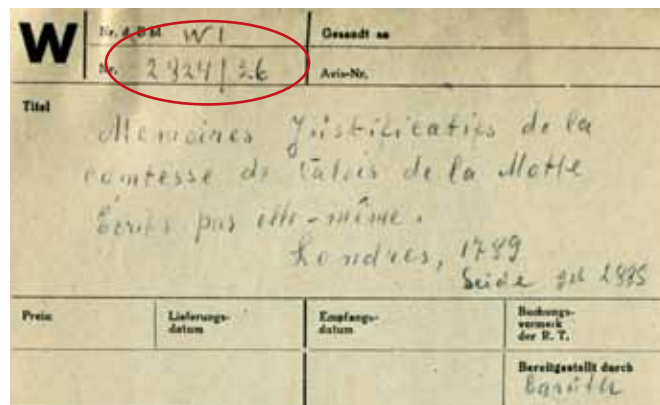 W
Nr. d. Bd. W I
Gesandt an
Nr. 2924/26
Avis-Nr.
Titel
Memoires Justificatifs de la
comtesse de Valois de la Motte
Écrits par elle-même.
Londres, 1789
Preis:
Lieferungs-
datum
Empfangs-
datum
Buchungs-
vermerk
der R. T.
Bereitgestellt durch